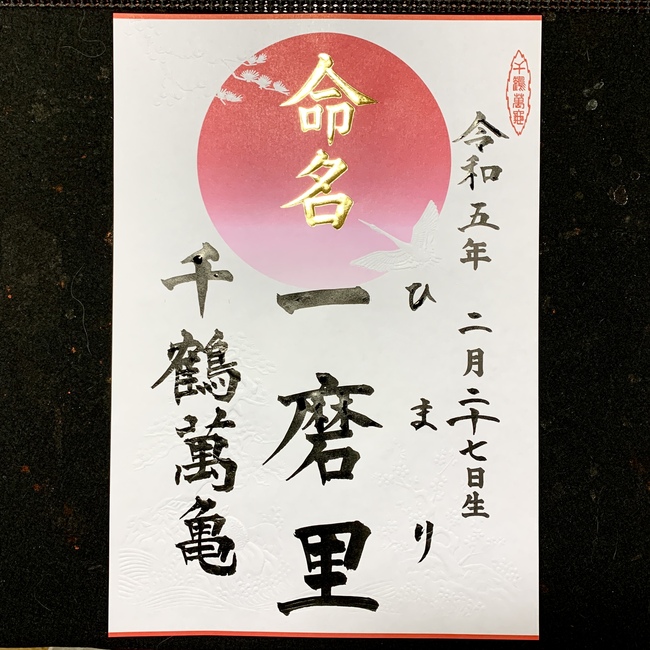 千鶴萬亀
令和五年 二月二十七日生
ひまり
命名
一磨里
千鶴萬亀